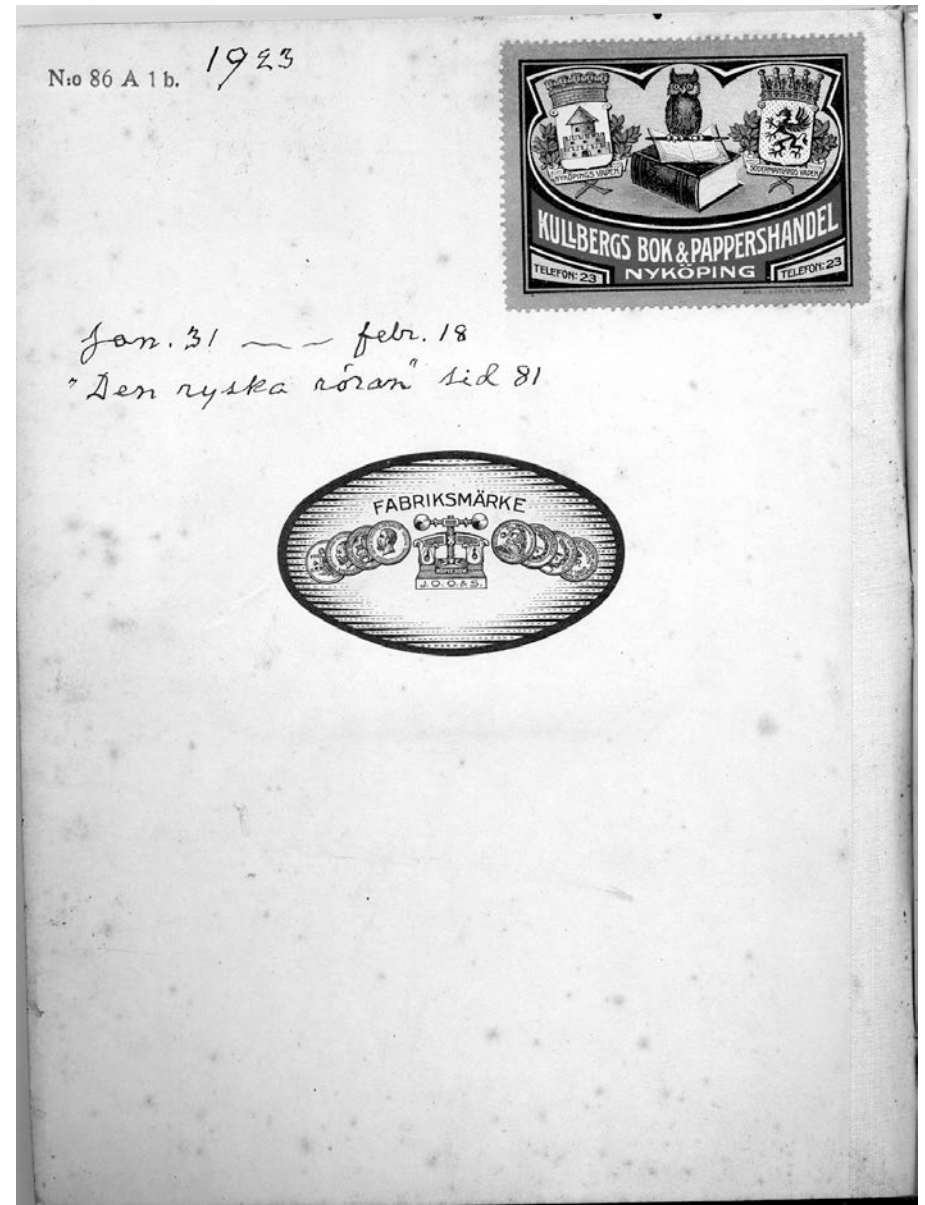 N:o 86 A 1 b.
1923
NYKÖPINGS VAPEN
SÖDERMANLANDS VAPEN
KULLBERGS BOK & PAPPERSHANDEL
TELEFON: 23
NYKÖPING
TELEFON: 23
Jan. 31 ~ ~ febr. 18
"Den ryska röran" sid 81
FABRIKSMÄRKE
J.O.Ö.&S.